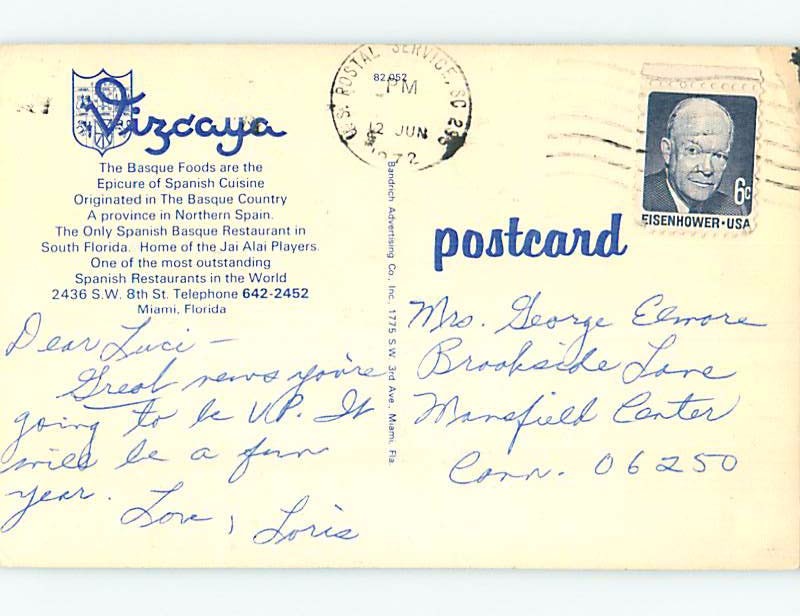 Vizcaya
The Basque Foods are the
Epicure of Spanish Cuisine
Originated in The Basque Country
A province in Northern Spain.
The Only Spanish Basque Restaurant in
South Florida. Home of the Jai Alai Players.
One of the most outstanding
Spanish Restaurants in the World
2436 S.W. 8th St. Telephone 642-2452
Miami, Florida
Dear Luci –
Great news you're
going to be V.P. It
will be a fun
year.
Love, Loris
82,052
Bandrich Advertising Co., Inc. 1775 S.W. 3rd Ave., Miami, Fla.
U.S. POSTAL SERVICE, SC
PM
12 JUN
1972
6c
EISENHOWER·USA
postcard
Mrs. George Elmore
Brookside Lane
Mansfield Center
Conn. 06250